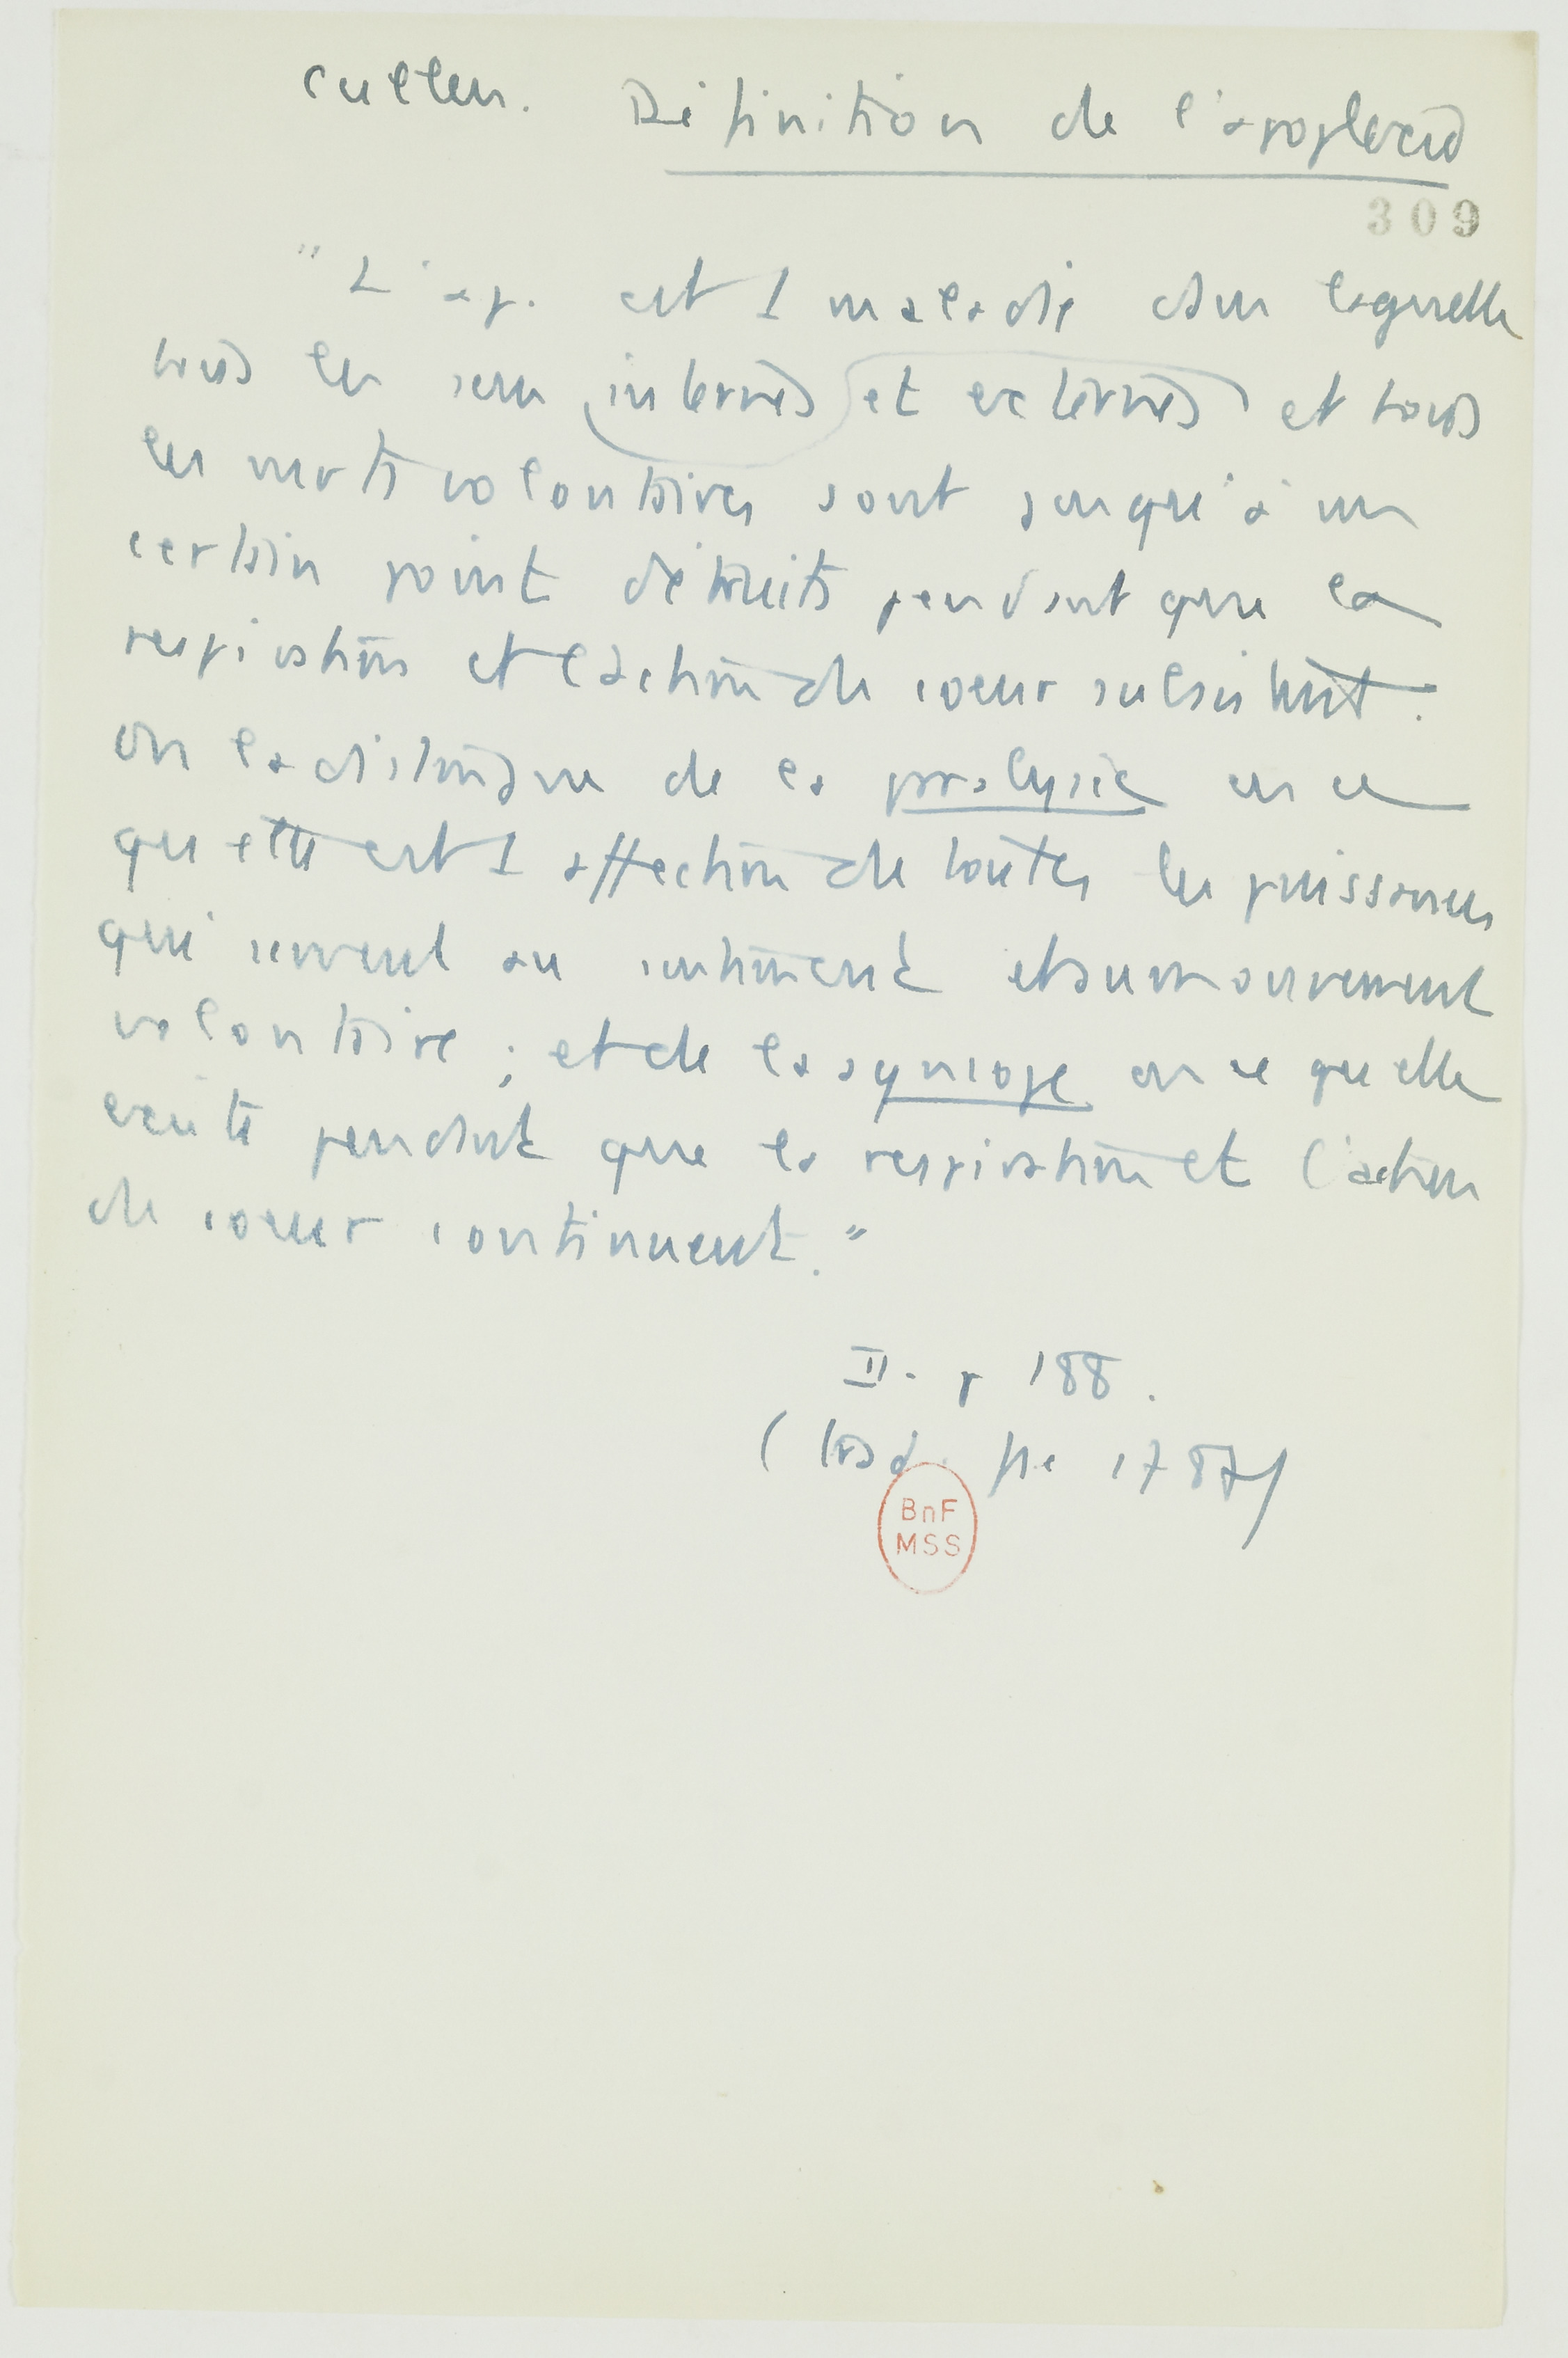 Cullen. Définition de l'apoplexie
309
"L'ap. est 1 maladie dans laquelle
tous les sens internes et externes et tous
les mvts volontaires sont jusqu'à un
certain point détruits pendant que la
respiration et l'action du coeur subsistent.
On la distingue de la paralysie en ce
qu'elle est 1 affection de toutes les puissances
qui servent au sentiment et au mouvement
volontaire ; et de la syncope en ce qu'elle
existe pendant que la respiration et l'action
du coeur continuent."
II. p 188.
(trad. fse 1787)
BnF
MSS